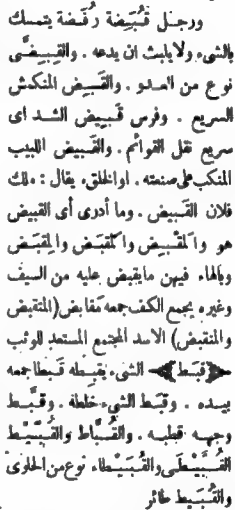 ورجل قُبَضة رُفَضة يتمسك
بالشىء ولا يلبث ان يدعه . والقِبِضَّى
نوع من العدو . والقَبيض المنكش
السريع . وفرس قَبيض الشد اى
سريع نقل القوائم . والقَبيض اللبيب
المنكب على صنعته . او الخلق، يقال : ملك
فلان القَبيض . وما أدرى أى القبيض
هو والمَقْبِض والمِقبَض والمَقبَض
وبالهاء فيهن مايقبض عليه من السيف
وغيره بجمع الكف جمعه مَقابض (المتقبض
والمنقبض) الاسد المجتمع المستعد للوثب
﴿قبَط﴾ الشىء يَقبِطه قَبطا جمعه
بيده . وقبَط الشىء خلطه . وقبَّط
وجهه قطبه . والقُبَّاط والقُبَّيْط
القُبَّيْطَى والقُبَيْطاء نوع من الحلوى
والقُبَيط طائر